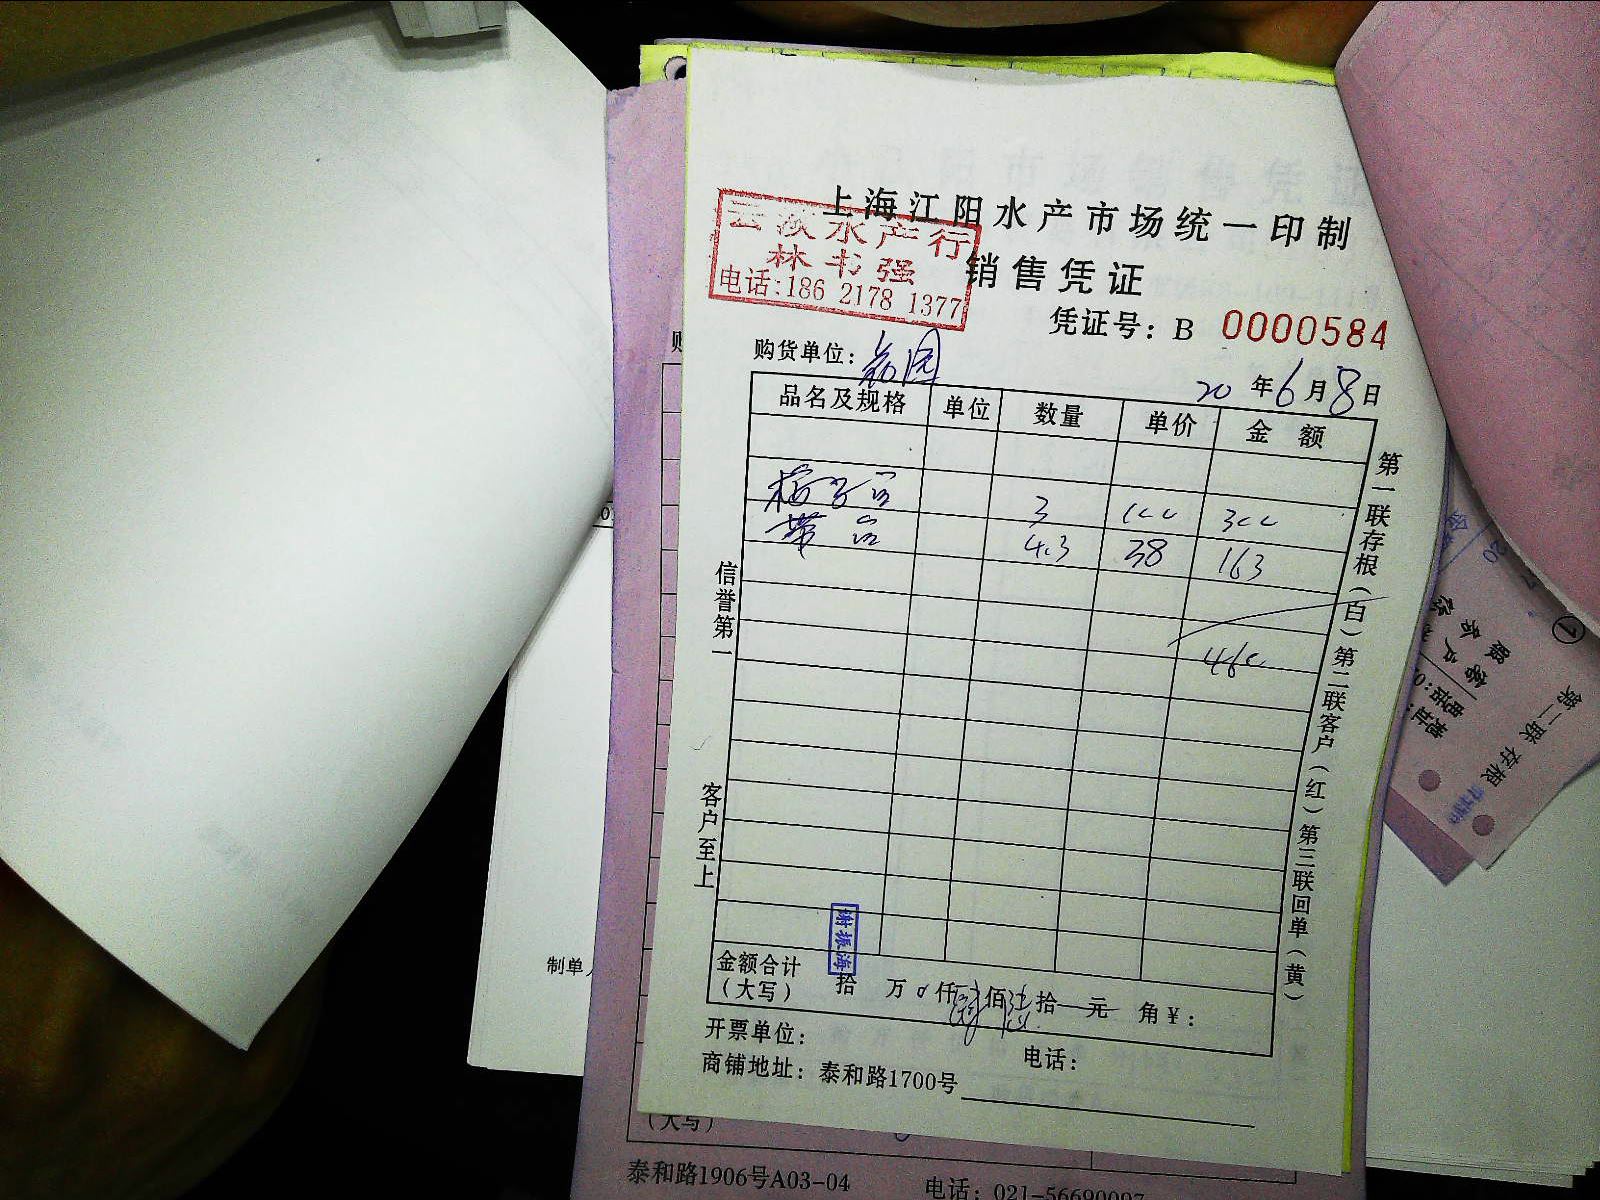 上海江阳水产市场统一印制
云淡水产行
林书强
电话:186 2178 1377
销售凭证
凭证号: B 0000584
购货单位:
20 年 6 月 8 日
品名及规格 单位 数量 单价 金额
3 100 300
带 4.3 38 163
460
信誉第一
客户至上
第一联存根(白)第二联客户(红)第三联回单(黄)
谢振海
金额合计
(大写) 拾 万 0 仟 肆 佰 陆 拾 元 角 ¥:
开票单位: 电话:
商铺地址: 泰和路1700号
制单
(大写)
泰和路1906号A03-04
电话: 021-56690097
第二联 存根
①